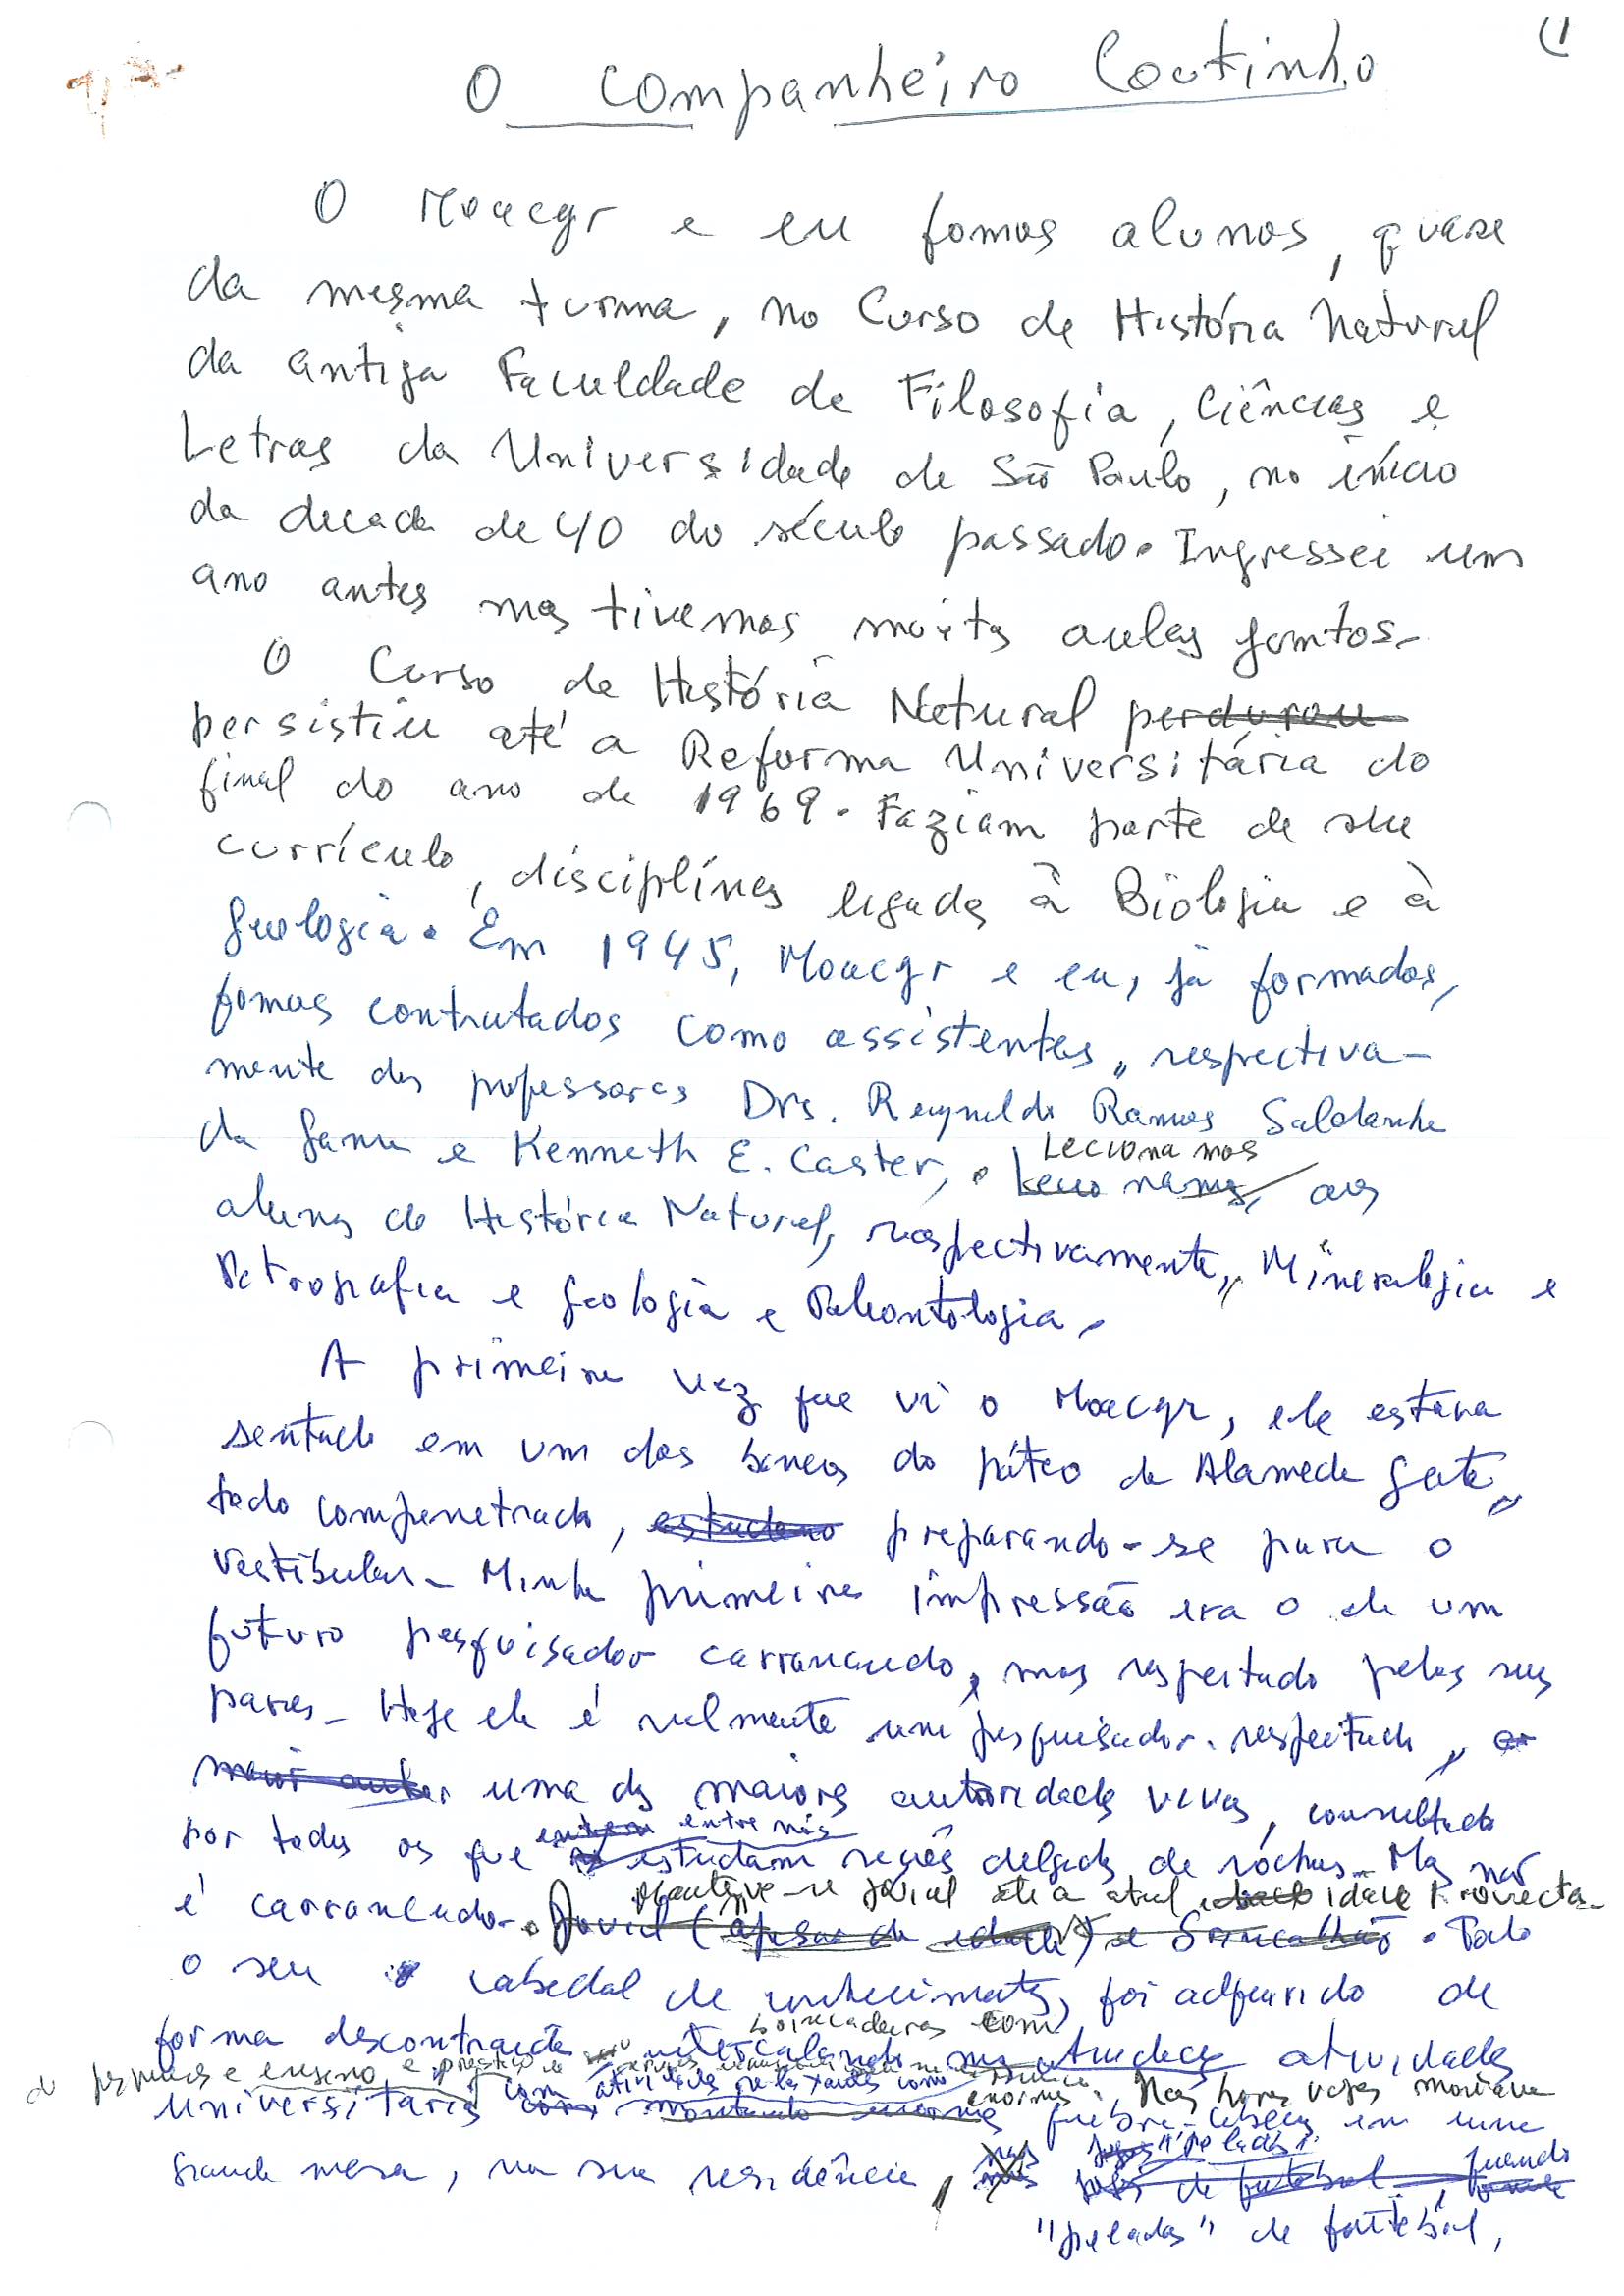 (1
O Companheiro Coutinho
O Moacyr e eu fomos alunos, quase
da mesma turma, no Curso de História Natural
da antiga Faculdade de Filosofia, Ciências e
Letras da Universidade de São Paulo, no início
da decada de 40 do século passado. Ingressei um
ano antes mas tivemos muitas aulas juntos.
O Curso de História Natural perdurou
persistiu até a Reforma Universitária do
final do ano de 1969. Faziam parte de seu
currículo, disciplinas ligadas à Biologia e à
Geologia. Em 1945, Moacyr e eu, já formados,
fomos contratados como assistentes, respectiva-
mente dos professores Drs. Reynaldo Ramos Saldanha
da Gama e Kenneth E. Caster,. Lecionamos
Lecionamos aos
alunos de História Natural, respectivamente, Mineralogia e
Petrografia e Geologia e Paleontologia.
A primeira vez que vi o Moacyr, ele estava
sentado em um dos bancos do páteo da Alameda Glete,
todo compenetrado, estudano preparando-se para o
vestibular. Minha primeira impressão era o de um
futuro pesquisador carrancudo, mas respeitado pelos seus
pares. Hoje ele é realmente um pesquisador respeitado,
maior autor uma das maiores autoridades vivas, consultado
entre nós
por todos os que estudam secções delgadas de rochas. Mas não
Manteve-se jovial até a atual idade provecta.
é carrancudo. Jovial (apesar da idade) e brincalhão. Todo
o seu cabedal de conhecimentos, foi adquirido de
brincadeiras com
forma descontraida intercalando atividades
de pesquisa e ensino e
com atividades relaxantes como
universitarias com montando enormes quebra-cabeças em uma
enormes. Nas horas vagas montava
grande mesa, na sua residência, nos jogos de futebol, quando
"peladas"
"peladas" de futebol,